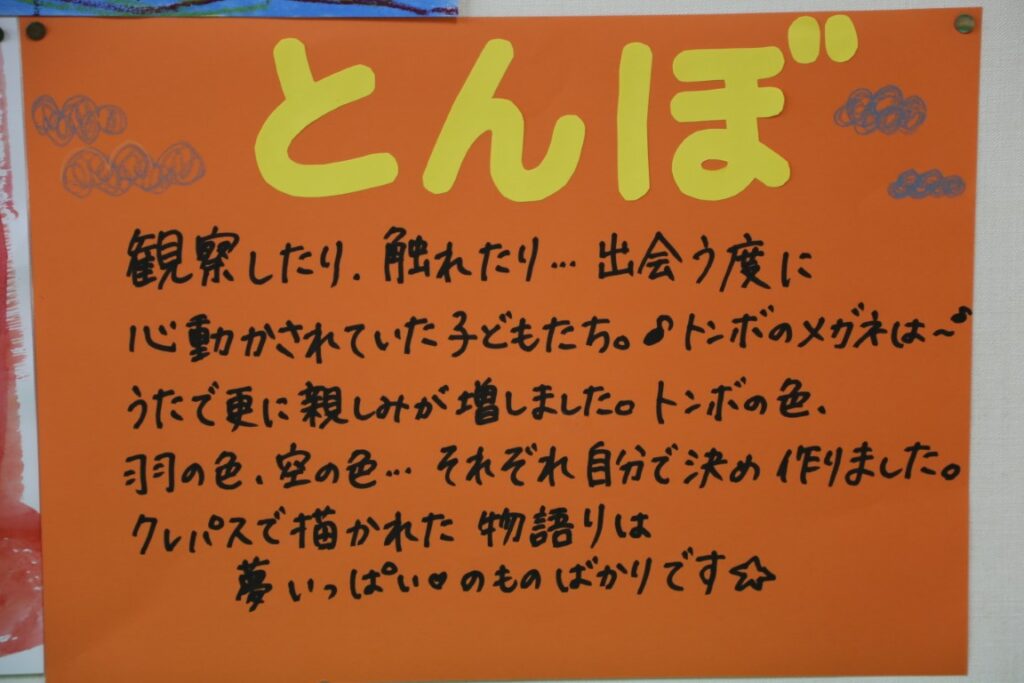 とんぼ
観察したり、触れたり…出会う度に
心動かされていた子どもたち。♪トンボのメガネは～♪
うたで更に親しみが増しました。トンボの色、
羽の色、空の色…それぞれ自分で決め作りました。
クレパスで描かれた物語りは
夢いっぱい♡のものばかりです☆